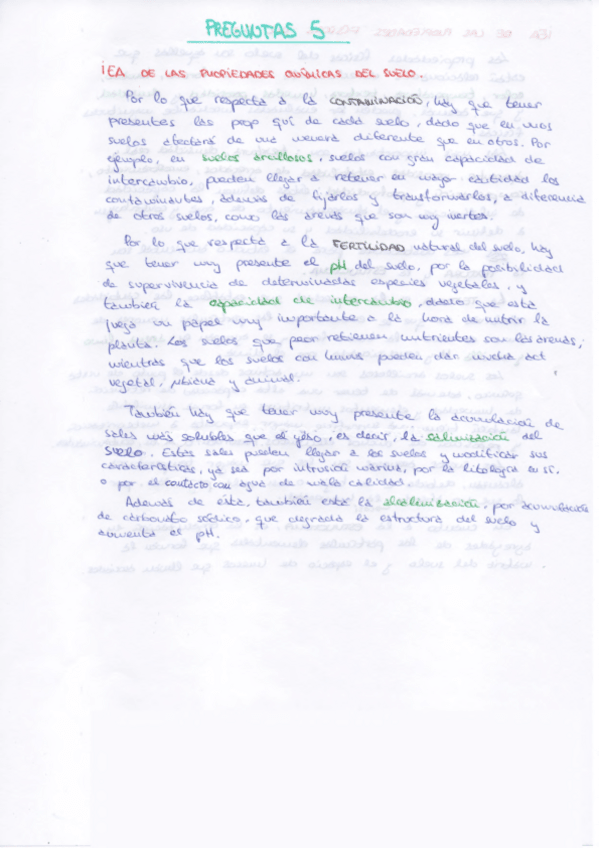 PREGUNTAS 5
iEA DE LAS PROPIEDADES QUÍMICAS DEL SUELO.
Por lo que respecta a la CONTAMINACIÓN, hay que tener
presentes las prop quí de cada suelo, dado que en unos
suelos afectará de una manera diferente que en otros. Por
ejemplo, en suelos arcillosos, suelos con gran capacidad de
intercambio, pueden llegar a retener en mayor cantidad los
contaminantes, además de fijarlos y transformarlos, a diferencia
de otros suelos, como las arenas que son muy inertes.
Por lo que respecta a la FERTILIDAD natural del suelo, hay
que tener muy presente el pH del suelo, por la posibilidad
de supervivencia de determinadas especies vegetales, y
también la capacidad de intercambio, dado que esta
juega un papel muy importante a la hora de nutrir la
planta. Los suelos que peor retienen nutrientes son las arenas,
mientras que los suelos con humus pueden dar mucha act
vegetal, µbiana y animal.
También hay que tener muy presente la acumulación de
sales más solubles que el yeso, es decir, la salinización del
suelo. Estas sales pueden llegar a los suelos y modificar sus
características, ya sea por intrusión marina, por la litología en sí,
o por el contacto con agua de mala calidad.
Además de esta, también está la alcalinización, por acumulación
de carbonato sódico, que degrada la estructura del suelo y
aumenta el pH.